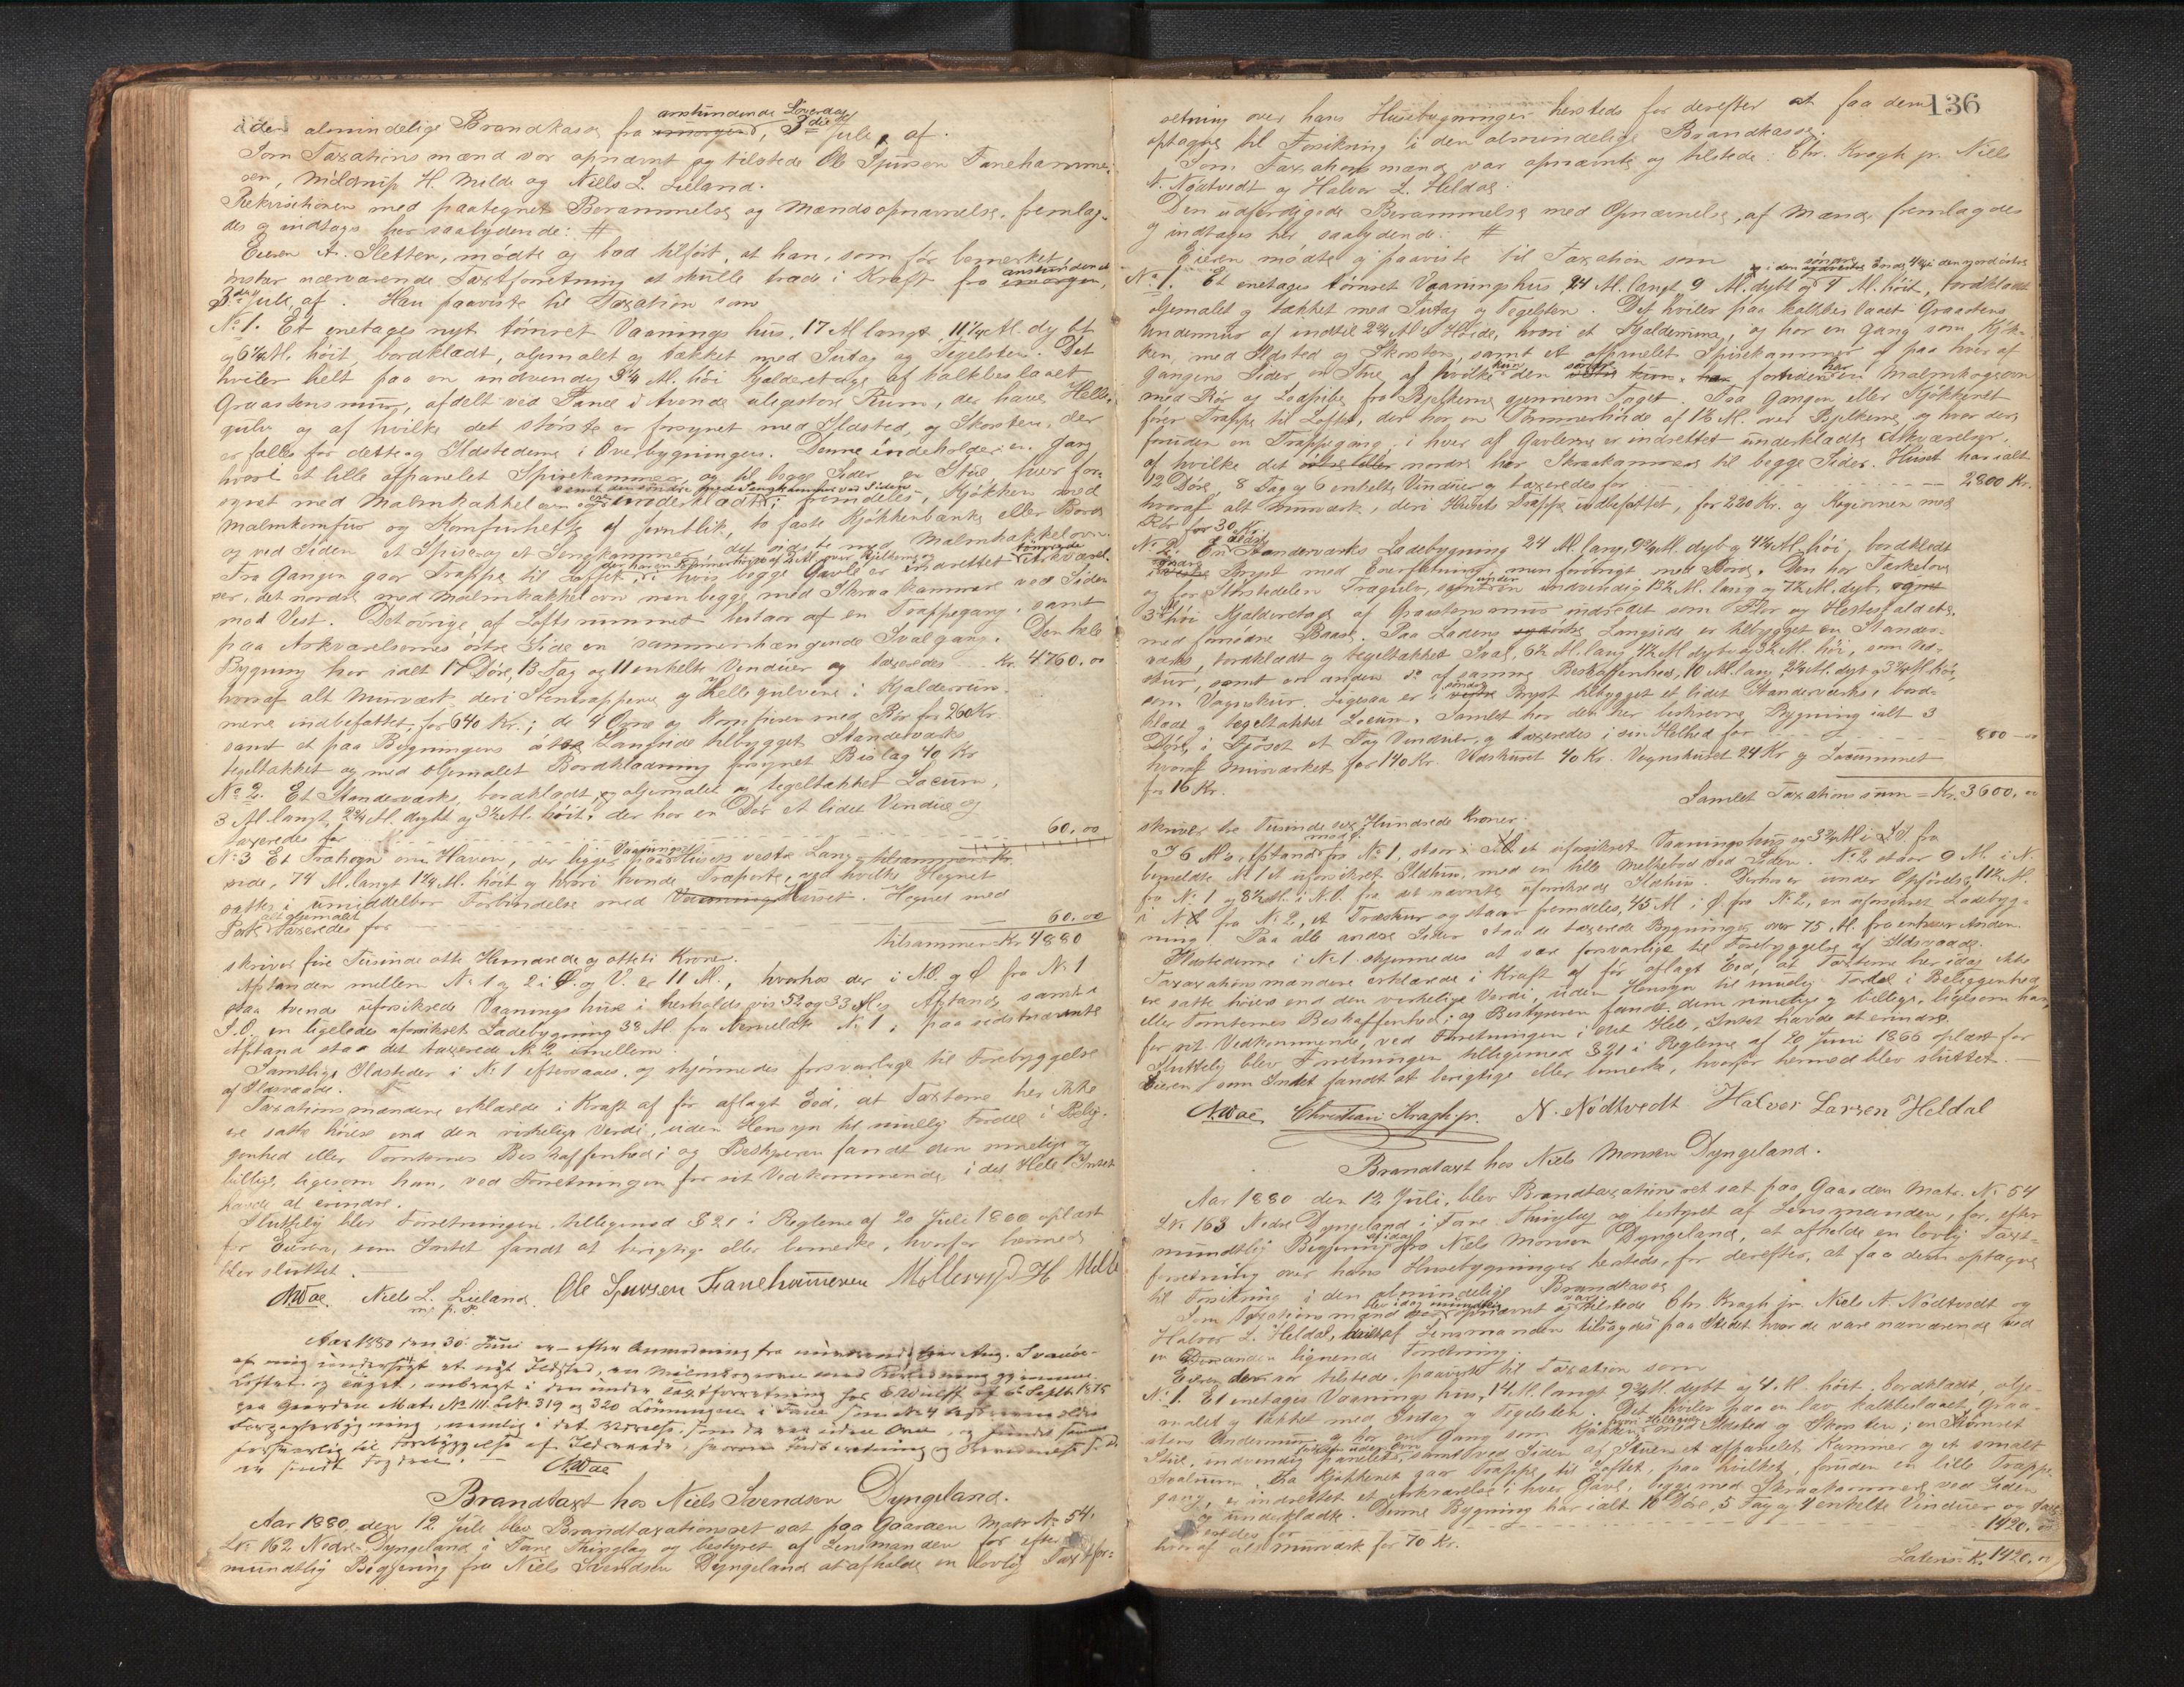 i den almindelige Brandkasse fra anstundende Löverdag 3die Juli, af.
Som Taxationsmænd var opnævnt og tilstede Ole Sjursen Fanehamme-
ren, Mildrup H. Milde og Niels L. Lieland.
Rekvisitionen med paategnet Berammelse og Mændsopnævnelse, fremlag-
des og indtages her saalydende: #
Eieren A. Sletten, mødte og bad tilført, at han, som før bemerket,
ønsker nærværende Taxtforretning at skulle træde i Kraft fra anstundende
3die Juli, af. Han paaviste til Taxation som
No 1. Et enetages nyt tømret Vaaningshus, 17 Al. langt, 11 1/4 Al. dybt
og 6 1/4 Al. høit, bordklædt, oljemalet og tækket med Sutag og Tegelsten. Det
hviler helt paa en indvendig 3 1/4 Al. høi Kjælderetage af kalkbeslaaet
Graastensmur, afdelt ved Panel i tvende uligestore Rum, der have Helle-
gulv og af hvilke det største er forsynet med Ildsted, og Skorsten, der
er fælles for dette og Ildstederne i Overbygningen. Denne indeholder en Gang
hvori et lille afpanelet Spisekammer, og til begge Sider en Stue hver for-
synet med Malmkakkelovn samt den søndre med Sengkammer ved Siden og underklædt; fremdeles, Kjøkken med
Malmkomfur og Komfurhætte af Jernblik, to faste Kjøkkenbænke eller Borde
og ved Siden et Spise- og et Sengkammer, det sidste med Malmkakkelovn.
Fra Gangen gaar Trappe til Loftet, der har en Tømmerhøide af 2 Al. over Bjelkerne og i hvis begge Gavle er indrettet tømrede Arkværel-
ser, det nordre med Malmkakkelovn men begge med Skraakammere ved Siden
mod Vest. Det øvrige af Loftsrummet bestaar af en Trappegang, samt
paa Arkværelsernes østre Side en sammenhængende Svalgang. Den hele
Bygning har ialt 17 Døre, 13 Fag og 11 enkelte Vinduer og taxeredes Kr. 4760.00
hvoraf alt Murværk, deri Stentrapperne og Hellegulvene i Kjælderrum-
mene indbefattet, for 640 Kr.; de 4 Ovne og Komfuren med Rør for 260 Kr
samt et paa Bygningens østre Langside tilbygget Standerværks
tegeltækket og med oljemalet Bordklædning forsynet Bislag 40 Kr
No 2. Et Standerværks, bordklædt og oljemalet og tegeltækket Locum,
3 Al. langt, 2 3/4 Al. dybt og 3 1/2 Al. høit, der har en Dør et lidet Vindue og
taxeredes for 60.00
No 3 Et Træhegn om Haven, der ligger paa Vaaningshusets vestre Lang-
side, 74 Al. langt 1 3/4 Al. høit og hvori tvende Træporte, ved hvilke Hegnet
sættes i umiddelbar Forbindelse med Huset. Hegnet med
Porte alt oljemalet taxeredes for 60.00
tilsammen Kr 4880
skriver fire Tusinde otte Hundrede og otteti Kroner.
Afstanden mellem No 1 og 2 i Ø. og V. er 11 Al., hvorhos der i N.O. og Ø fra No 1
staa tvende uforsikrede Vaaningshuse i herholdsvis 52 og 33 Al.s Afstand samt i
S.O. en ligeledes uforsikret Ladebygning 38 Al. fra No 1, paa sidstnævnte
Afstand staa det taxerede No 2 imellem.
Samtlige Ildsteder i No 1 eftersaaes, og skjønnedes forsvarlige til Forebyggelse
af Ildsvaade.
Taxationsmændene erklærede i Kraft af før aflagt Eed, at Taxterne her ikke
ere satte høiere end den virkelige Verdi, uden Hensyn til muelig Fordel i Belig-
genhed eller Tomternes Beskaffenhed; og Bestyreren fandt dem rimelige og
billige, ligesom han, ved Forretningen for sit Vedkommende, i det Hele Intet
havde at erindre.
Sluttelig blev Forretningen tilligemed § 21 i Reglerne af 20 Juli 1866 oplæst
for Eieren, som Intet fandt at berigtige eller bemerke, hvorfor hermed
blev sluttet.
NWae. Niels L. Lieland. Ole Sjursen Fanehammeren Möllerup H Milde
m. p. P.
Aar 1880 den 30 Juni er efter Anmodning fra Aug.
af mig undersøgt et nyt Ildsted, en Malmkogeovn med Rørledning gjennem
Loftet og Taget, anbragt i den under Taxtforretning hos E Wulff af 6 Septb. 1875
paa Gaarden Matr No 111 LNo 319 og 320 Lönningen i Fane
forsvarlig til Forebyggelse af Ildsvaade,
NWae
Brandtaxt hos Niels Svendsen Dyngeland.
Aar 1880 den 12 Juli blev Brandtaxationsret sat paa Gaarden Matr No 54,
LNo 162 Nedre Dyngeland i Fane Thinglag og bestyret af Lensmanden for efter
mundtlig Begjering fra Niels Svendsen Dyngeland at afholde en lovlig Taxtfor-
136
retning over hans Husebygninger hersteds for derefter at faa dem
optagne til Forsikring i den almindelige Brandkasse.
Som Taxationsmænd var opnævnte og tilstede: Chr. Kragh jr. Niels
N. Nødtvedt og Halvor L. Heldal.
Den udfærdigede Berammelse med Opnævnelse af Mænd fremlagdes
og indtages her saalydende: #
Eieren mødte og paaviste til Taxation som
No 1. Et enetages tømret Vaaningshus, 24 Al. langt 9 Al. dybt og i den søndre Ende 4 Al. høit, bordklædt
oljemalet og tækket med Sutag og Tegelsten. Det hviler paa kalkbeslaaet Graastens
Undermur af indtil 2 3/4 Al.s Høide, hvori et Kjælderrum, og har en Gang som Kjøk-
ken, med Ildsted og Skorsten, samt et afpanelet Spisekammer og paa hver af
Gangens Sider en Stue, af hvilke kun den søndre foruden har en Malmkogeovn
med Rør og Lodpibe fra Bjelkerne gjennem Taget. Fra Gangen eller Kjøkkenet
fører Trappe til Loftet, der har en Tømmerhøide af 1 1/2 Al. over Bjelkerne, og hvor der,
foruden en Trappegang, i hver af Gavlerne er indrettet underklædte Arkværelser,
af hvilke det nordre har Skraakammer til begge Sider. Huset har ialt
12 Døre, 8 Fag og 6 enkelte Vinduer og taxeredes for 2800 Kr.
hvoraf alt Murværk, deri Husets Trappe indbefattet, for 220 Kr. og Kogeovnen med
Rør for 30 Kr.
No 2. En ældre Standerværks Ladebygning 24 Al. lang, 9 3/4 Al. dyb og 4 1/4 Al. høi, bordklædt
Bryst med Everfletning men forøvrigt med Bord. Den har Tærskelove
og for Størstedelen Trægulv, samt under en indvendig 13 1/2 Al. lang og 7 1/4 Al. dyb,
3 Al. høi Kjælderetage af Graastensmur indredet som Flor og Hestestald etc.
med fornødne Baase. Paa Ladens Langside er tilbygget en Stander-
værks, bordklædt og tegeltækket Sval, 6 1/2 Al. lang 4 1/2 Al. dyb og 3 1/2 Al. høi, som Ved-
skur, samt en anden do af samme Beskaffenhed, 10 Al. lang, 2 3/4 Al. dyb og 3 3/4 Al. høi,
som Vognskur. Ligesaa er i søndre Bryst tilbygget et lidet Standerværks, bord-
klædt og tegeltækket Locum. Samlet har den her beskrevne Bygning ialt 3
Døre, i Fjøset et Fag Vinduer, og taxeredes i sin Helhed for 800
hvoraf Murværket for 140 Kr. Vedskuret 40 Kr. Vognskuret 24 Kr og Locummet
for 16 Kr.
Samlet Taxationssum = Kr. 3600.00
skriver tre Tusinde sex Hundrede Kroner.
I 6 Al.s Afstand mod Ø. fra No 1, staar et uforsikret Vaaningshus og 3 3/4 Al. i S.O fra
bemeldte No 1 et uforsikret Ildhus, med en lille Melkebod ved Siden. No 2 staar 9 Al. i N.
fra No 1 og 8 1/2 Al. i N.O. fra det nævnte uforsikrede Ildhus. Derhos er under Opførelse, 11 1/2 Al.
i N fra No 2, et Træskur og staar fremdeles, 45 Al i Ø. fra No 2, en uforsikret Ladebyg-
ning. Paa alle andre Sider staa de taxerede Bygninger over 75 Al. fra enhver Anden.
Ildstederne i No 1 skjønnedes at være forsvarlige til Forebyggelse af Ildsvaade.
Taxationsmændene erklærede i Kraft af før aflagt Eed, at Taxterne her idag ikke
ere satte høiere end den virkelige Verdi, uden Hensyn til muelig Fordel i Beliggenhed
eller Tomternes Beskaffenhed; og Bestyreren fandt dem rimelige og billige, ligesom han,
for sit Vedkommende, ved Forretningen i det Hele, Intet havde at erindre.
Sluttelig blev Forretningen tilligemed § 21 i Reglerne af 20 Juni 1866 oplæst for
Eieren som Intet fandt at berigtige eller bemerke, hvorfor hermed blev sluttet.
NWae. Christian Kragh jr. N. Nödtvedt Halvor Larsen Heldal
Brandtaxt hos Niels Monsen Dyngeland.
Aar 1880 den 12 Juli, blev Brandtaxationsret sat paa Gaarden Matr. No 54
LNo 163 Nedre Dyngeland i Fane Thinglag og bestyret af Lensmanden, for, efter
mundtlig Begjering af idag fra Niels Monsen Dyngeland, at afholde en lovlig Taxt-
forretning over hans Husebygninger hersteds, for derefter, at faa dem optagne
til Forsikring i den almindelige Brandkasse
Som Taxationsmænd blev idag mundtlig opnævnt og var tilstede Chr. Kragh jr. Niels N. Nødtvedt og
Halvor L. Heldal, af Lensmanden tilsagdes paa Stedet hvor de vare nærværende ved
en anden lignende Forretning.
Eieren der var tilstede paaviste til Taxation som
No 1. Et enetages Vaaningshus, 14 Al. langt 9 3/4 Al. dybt og 4 Al. høit, bordklædt, olje-
malet og tækket med Sutag og Tegelsten. Det hviler paa en lav kalkbeslaaet Graa-
stens Undermur og har en Gang som Kjøkken, hvori Hellegulv med Ildsted og Skorsten; en tømret
Stue, indvendig panelet, samt ved Siden af Stuen et afpanelet Kammer og et smalt
Svalrum. Fra Kjøkkenet gaar Trappe til Loftet, paa hvilket, foruden en lille Trappe-
gang, er indrettet et Arkværelse i hver Gavl, begge med Skraakammere ved Siden
og underklædte. Denne Bygning har ialt 10 Døre, 5 Fag og 4 enkelte Vinduer og taxe-
redes for 1420.00
hvoraf alt Murværk for 70 Kr.
Lateris: Kr. 1420.00